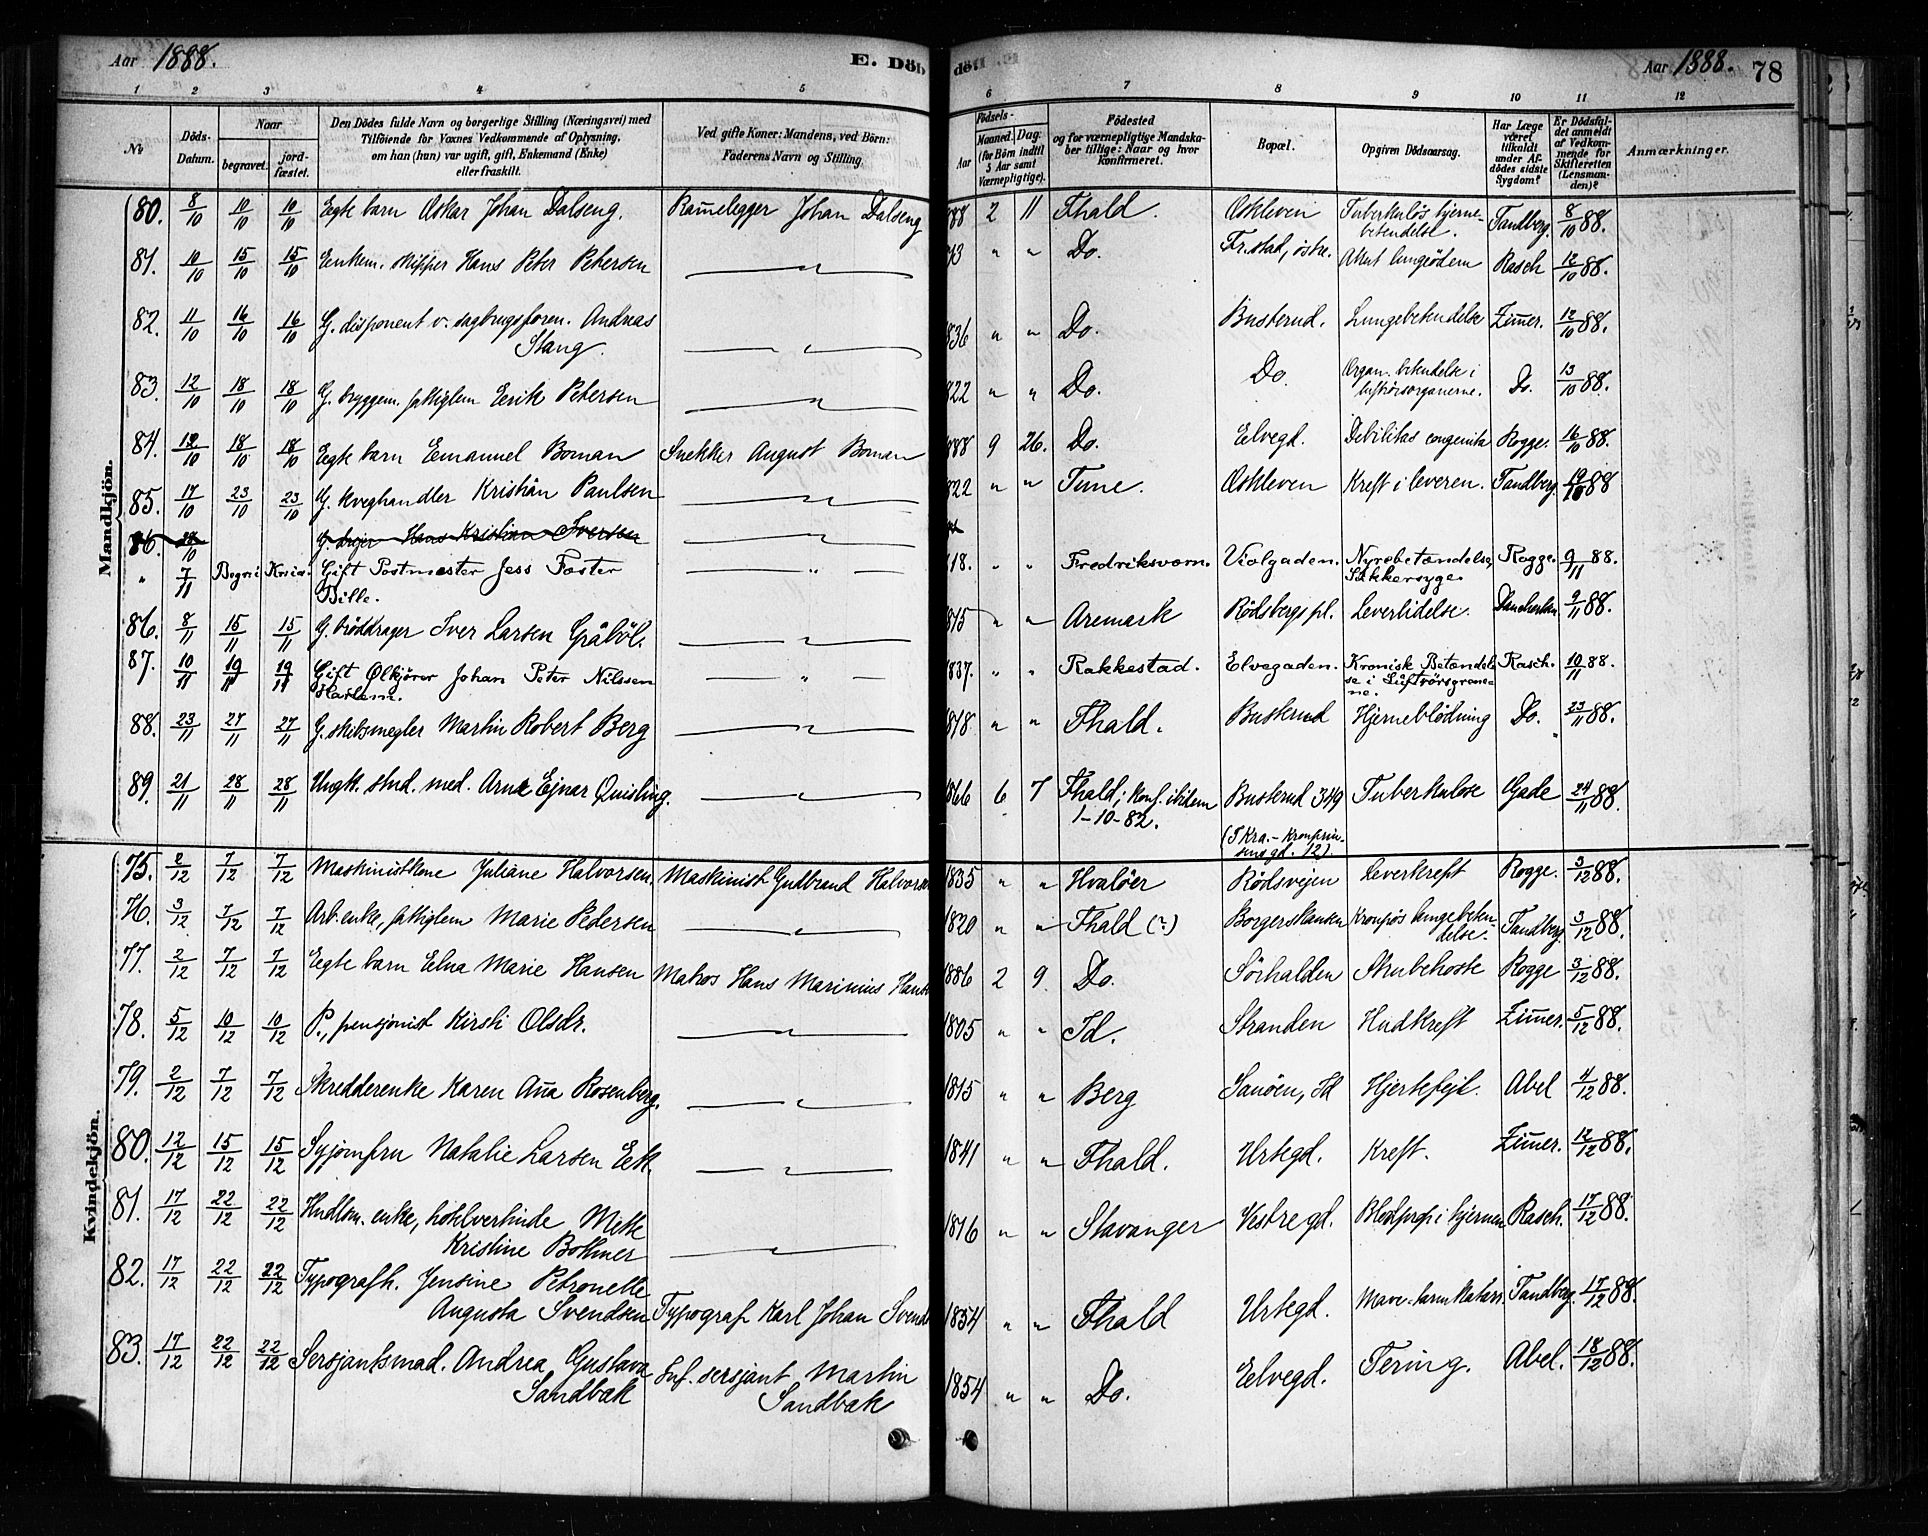 Aar 1888.
E. Döb
1 2 3 4 5
No
Döds-Datum.
Naar
begravet.
jord-fæstet.
Den Dödes fulde Navn og borgerlige Stilling (Næringsvei) med
Tilföiende for Voxnes Vedkommende af Oplysning,
om han (hun) var ugift, gift, Enkemand (Enke)
eller fraskilt.
Ved gifte Koner: Mandens, ved Börn:
Faderens Navn og Stilling.
Mandkjön.
80. 8/10 10/10 10/10 Egte barn Oskar Johan Dalseng. Rammelegger Johan Dalseng
81. 10/10 15/10 15/10 Enkem. skipper Hans Peter Petersen — " —
82. 11/10 16/10 16/10 G. disponent v. sagbrugsforen. Andreas
Stang. — " —
83. 12/10 18/10 18/10 G. bryggem. fattiglem Eerik Petersen — " —
84. 12/10 18/10 18/10 Egte barn Emanuel Boman Snekker August Boman
85. 17/10 23/10 23/10 G. kveghandler Kristian Paulsen — " —
86. 28/10 G. drejer Hans Kristian Iversen — " —
" 7/11 Begr. i Kr.ia. Gift Postmester Jess Foster
Bille. — " —
86. 8/11 15/11 15/11 G. brøddrager Iver Larsen Gråbøl. — " —
87. 10/11 19/11 19/11 Gift Ølkjører Johan Peter Nilssen
Harlem. — " —
88. 23/11 27/11 27/11 G. skibsmegler Martin Robert Berg — " —
89. 21/11 28/11 28/11 Ungk. stud. med. Arne Ejnar Quisling. — " —
Kvindekjön.
75. 2/12 7/12 7/12 Maskinistkone Juliane Halvorsen. Maskinist Gulbrand Halvorse
76. 3/12 7/12 7/12 Arb.enke, fattiglem Marie Pedersen — " —
77. 2/12 7/12 7/12 Egte barn Elna Marie Hansen Matros Hans Marinius Hans
78. 5/12 10/12 10/12 P., pensjonist Kirsti Olsdr. — " —
79. 2/12 7/12 7/12 Skredderenke Karen Anna Rosenberg. — " —
80. 12/12 15/12 15/12 Syjomfru Natalie Larsen Eek. — " —
81. 17/12 22/12 22/12 Hndlsm. enke, hotelvertinde, Mette
Kristine Bothner — " —
82. 17/12 22/12 22/12 Typografk. Jensine Petronelle
Augusta Svendsen Typograf Karl Johan Svend
83. 17/12 22/12 22/12 Sersjantsmad. Andrea Gustava
Sandbak Inf. sersjant Martin
Sandbak
döde.
Aar 1888. 78
6 7 8 9 10 11 12
Födsels-
Aar
Maaned. Dag:
(for Börn indtil
5 Aar samt
Værnepligtige).
Födested
og for værnepligtige Mandska-
ber tillige: Naar og hvor
konfirmeret.
Bopæl.
Opgiven Dödsaarsag.
Har Læge
været
tilkaldt
under Af-
dödes sidste
Sygdom?
Er Dödsfal-
det anmeldt
af Vedkom-
mende for
Skifteretten
(Lensman-
den)?
Anmærkninger.
888 2 11 Fhald. Oskleven Tuberkuløs hjerne-
betendelse. Tandberg. 8/10 88.
" " Do. Fr.stad, østre. Akut lungeødem Rasch 12/10 88.
836 " " Do. Busterud. Lungebetendelse Zimmer. 12/10 88.
822 " " Do. Do. Organ. betendelse i
luftrørsorganerne. Do. 13/10 88.
888 9 26. Do. Elvegd. Debilitas congenita Rogge. 16/10 88.
822 " " Tune. Oskleven Kreft i leveren. Tandberg. 19/10 88
818. " " Fredriksværn. Violgaden. Nyrebetændelse,
Sukkersyge. Rogge. 9/11 88.
1815 " " Aremark Rødsbergs pl. Leverlidelse. 9/11 88.
1837. " " Rakkestad. Elvegaden. Kronisk Betændel-
se i Luftrørsgrene-
ne. Rasch. 10/11 88.
1818. " " Fhald. Busterud Hjerneblødning Do. 23/11 88.
1866 6 7 Fhald; konf. ibidem
1-10-82. Busterud 349
(I Kra. - Kronprin-
sensgd. 12). Tuberkulose Gade 24/11 88.
1835 " " Hvaløer Rødsvejen Leverkreft Rogge. 3/12 88.
1820 " " Fhald (?) Borgerskansen Kroupøs lungebeten-
delse. Tandberg. 3/12 88.
1886 2 9. Do. Sørhalden Strubehoste Rogge 3/12 88.
1805 " " Id. Stranden Hudkreft Zimmer. 5/12 88.
1815 " " Berg Sanøen, Id Hjertefejl. Abel 4/12 88.
1841 " " Fhald. Urtegd. Kreft. Zimmer. 12/12 88.
1816 " " Stavanger Vestregd. Blodprop i hjernen Rasch. 17/12 88.
1854 " " Fhald Urtegd. Mave-tarmkatarr. Tandberg. 17/12 88.
1854 " " Do. Elvegd. Tering. Abel. 18/12 88.